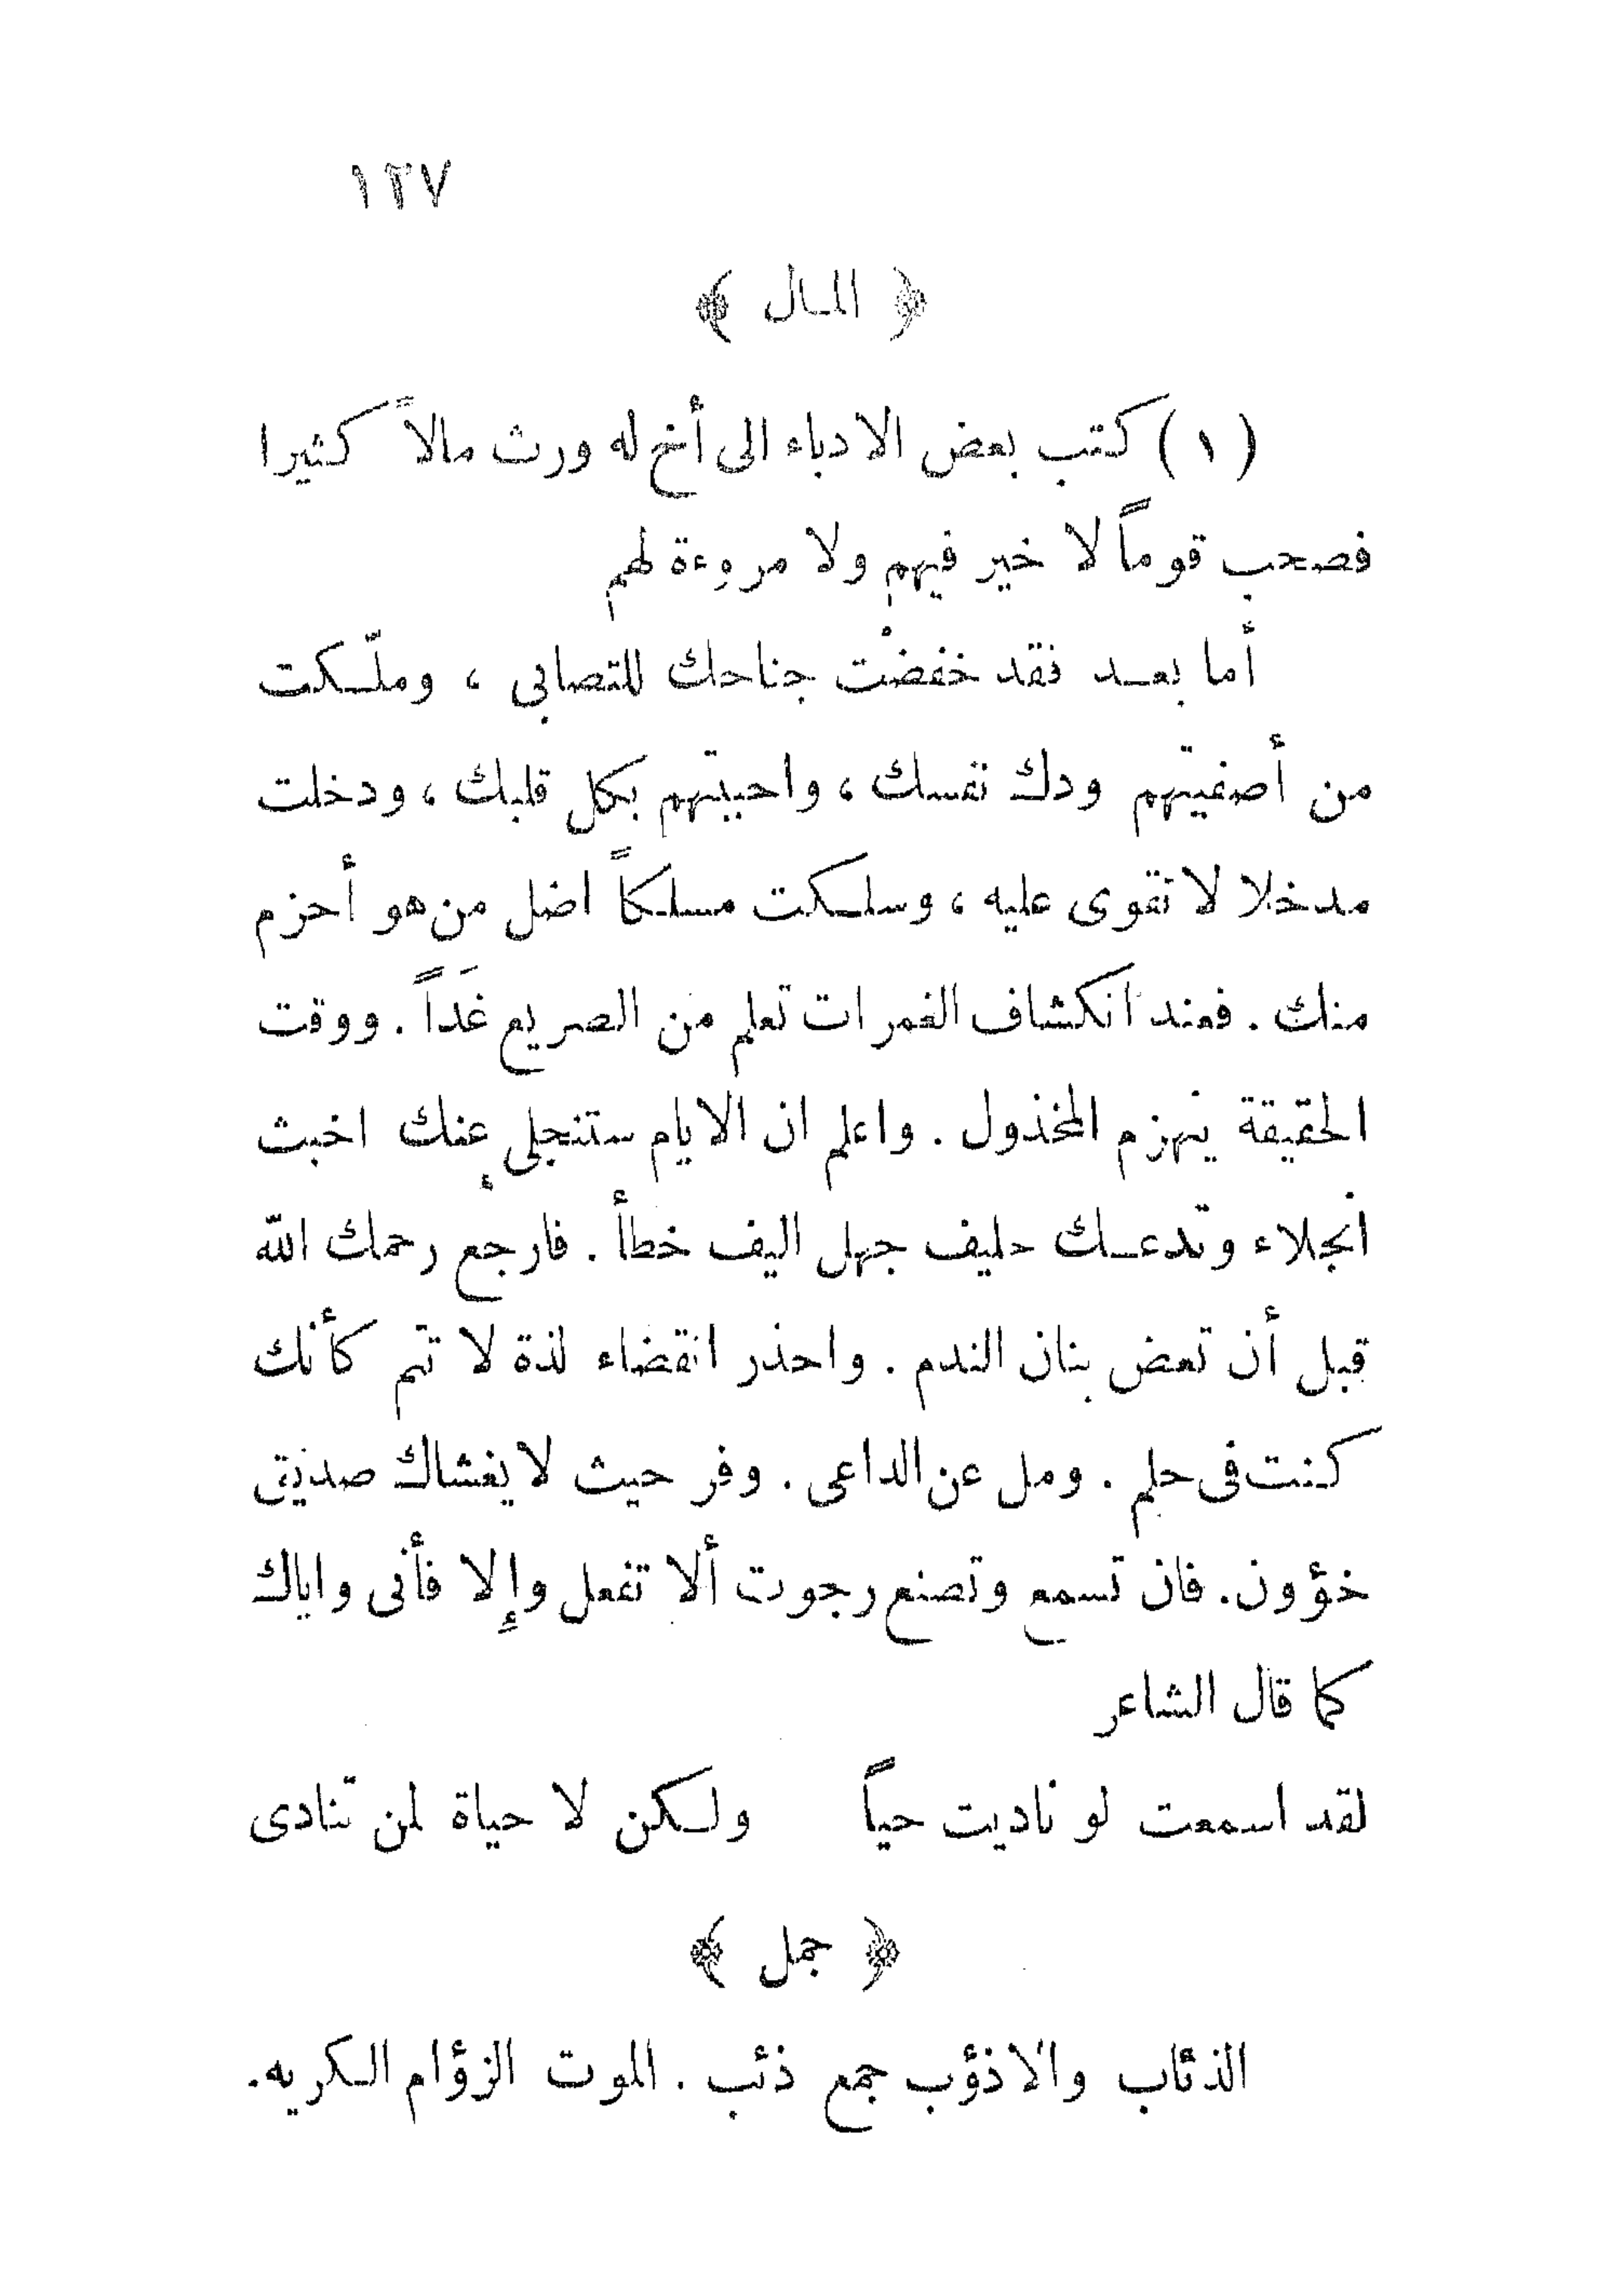 ١٢٧
﴿ المال ﴾
(١) كتب بعض الادباء الى أخ له ورث مالاً كثيرا
فصحب قوماً لا خير فيهم ولا مروءة لهم
أما بعد فقد خفضْت جناحك للتصابى ، وملّكت
من أصفيتهم ودك نفسك ، واحببتهم بكل قلبك ، ودخلت
مدخلا لا تقوى عليه ، وسلكت مسلكاً اضل من هو أحزم
منك . فعند انكشاف الغمرات تعلم من الصريع غَداً . ووقت
الحقيقة ينهزم المخذول . واعلم ان الايام ستنجلى عنك اخبث
انجلاء وتدعك حليف جهل اليف خطأ . فارجع رحمك الله
قبل أن تعض بنان الندم . واحذر انقضاء لذة لا تتم كأنك
كنت فى حلم . ومل عن الداعى . وفر حيث لا يغشاك صديق
خؤون. فان تسمع وتصنع رجوت ألا تفعل وإلا فأنى واياك
كما قال الشاعر
لقد اسمعت لو ناديت حياً ولكن لا حياة لمن تنادى
﴿ جمل ﴾
الذئاب والاذؤب جمع ذئب . الموت الزؤام الكريه.